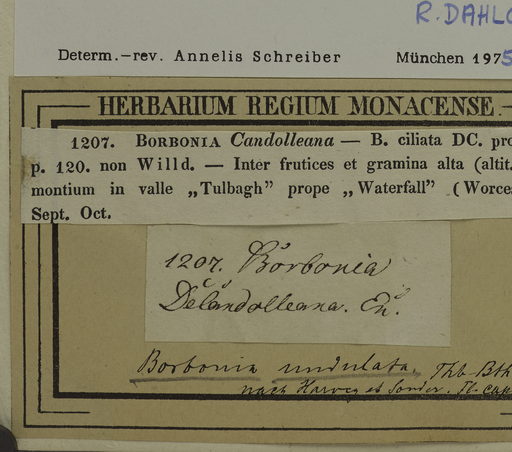 R. DAHLG
Determ.—rev. Annelis Schreiber München 1975
HERBARIUM REGIUM MONACENSE.
1207. BORBONIA Candolleana — B. ciliata DC. pro
p. 120. non Willd. — Inter frutices et gramina alta (altit.
montium in valle „Tulbagh" prope „Waterfall" (Worces
Sept. Oct.
1207. Borbonia
DeCandolleana. En.
Borbonia undulata, Thb
nach Harvey et Sonder. Fl. cap